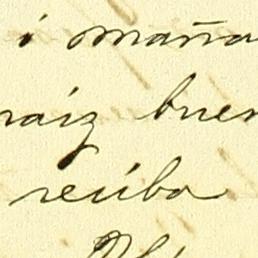 i maña
raiz buen
reciba